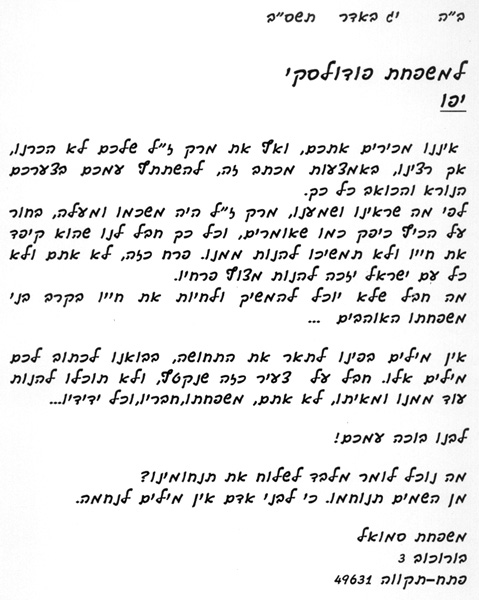 ב"ה יג באדר תשס"ב
למשפחת פודולסקי
יפו
איננו מכירים אתכם, ואף את מרק ז"ל שלכם לא הכרנו,
אך רצינו, באמצעות מכתב זה, להשתתף עמכם בצערכם
הנורא והכואב כל כך.
לפי מה שראינו ושמענו, מרק ז"ל היה משכמו ומעלה, בחור
על הכיף כיפק כמו שאומרים, וכל כך חבל לנו שהוא קיפד
את חייו ולא תמשיכו להנות ממנו. פרח כזה, לא אתם ולא
כל עם ישראל יזכה להנות מצוף פרחיו.
מה חבל שלא יוכל להמשיך ולחיות את חייו בקרב בני
משפחתו האוהבים ...
אין מילים בפינו לתאר את התחושה, בבואנו לכתוב לכם
מילים אלו. חבל על צעיר כזה שנקטף, ולא תוכלו להנות
עוד ממנו ומאיתו, לא אתם, משפחתו,חבריו,וכל ידידיו...
לבנו בוכה עמכם!
מה נוכל לומר מלבד לשלוח את תנחומינו?
מן השמים תנוחמו. כי לבני אדם אין מילים לנחמה.
משפחת סמואל
בורוכוב 3
פתח-תקווה 49631